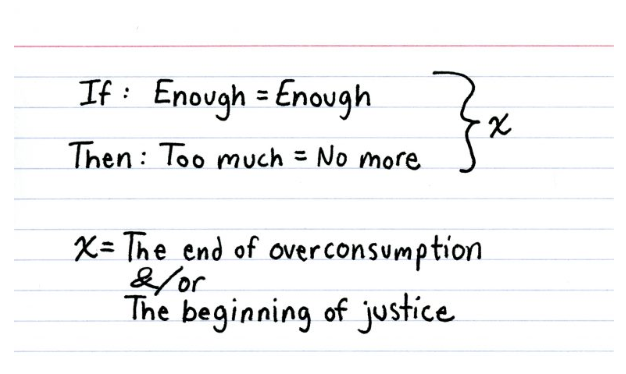 If : Enough = Enough
Then : Too much = No more
} x
x = The end of overconsumption
&/or
The beginning of justice